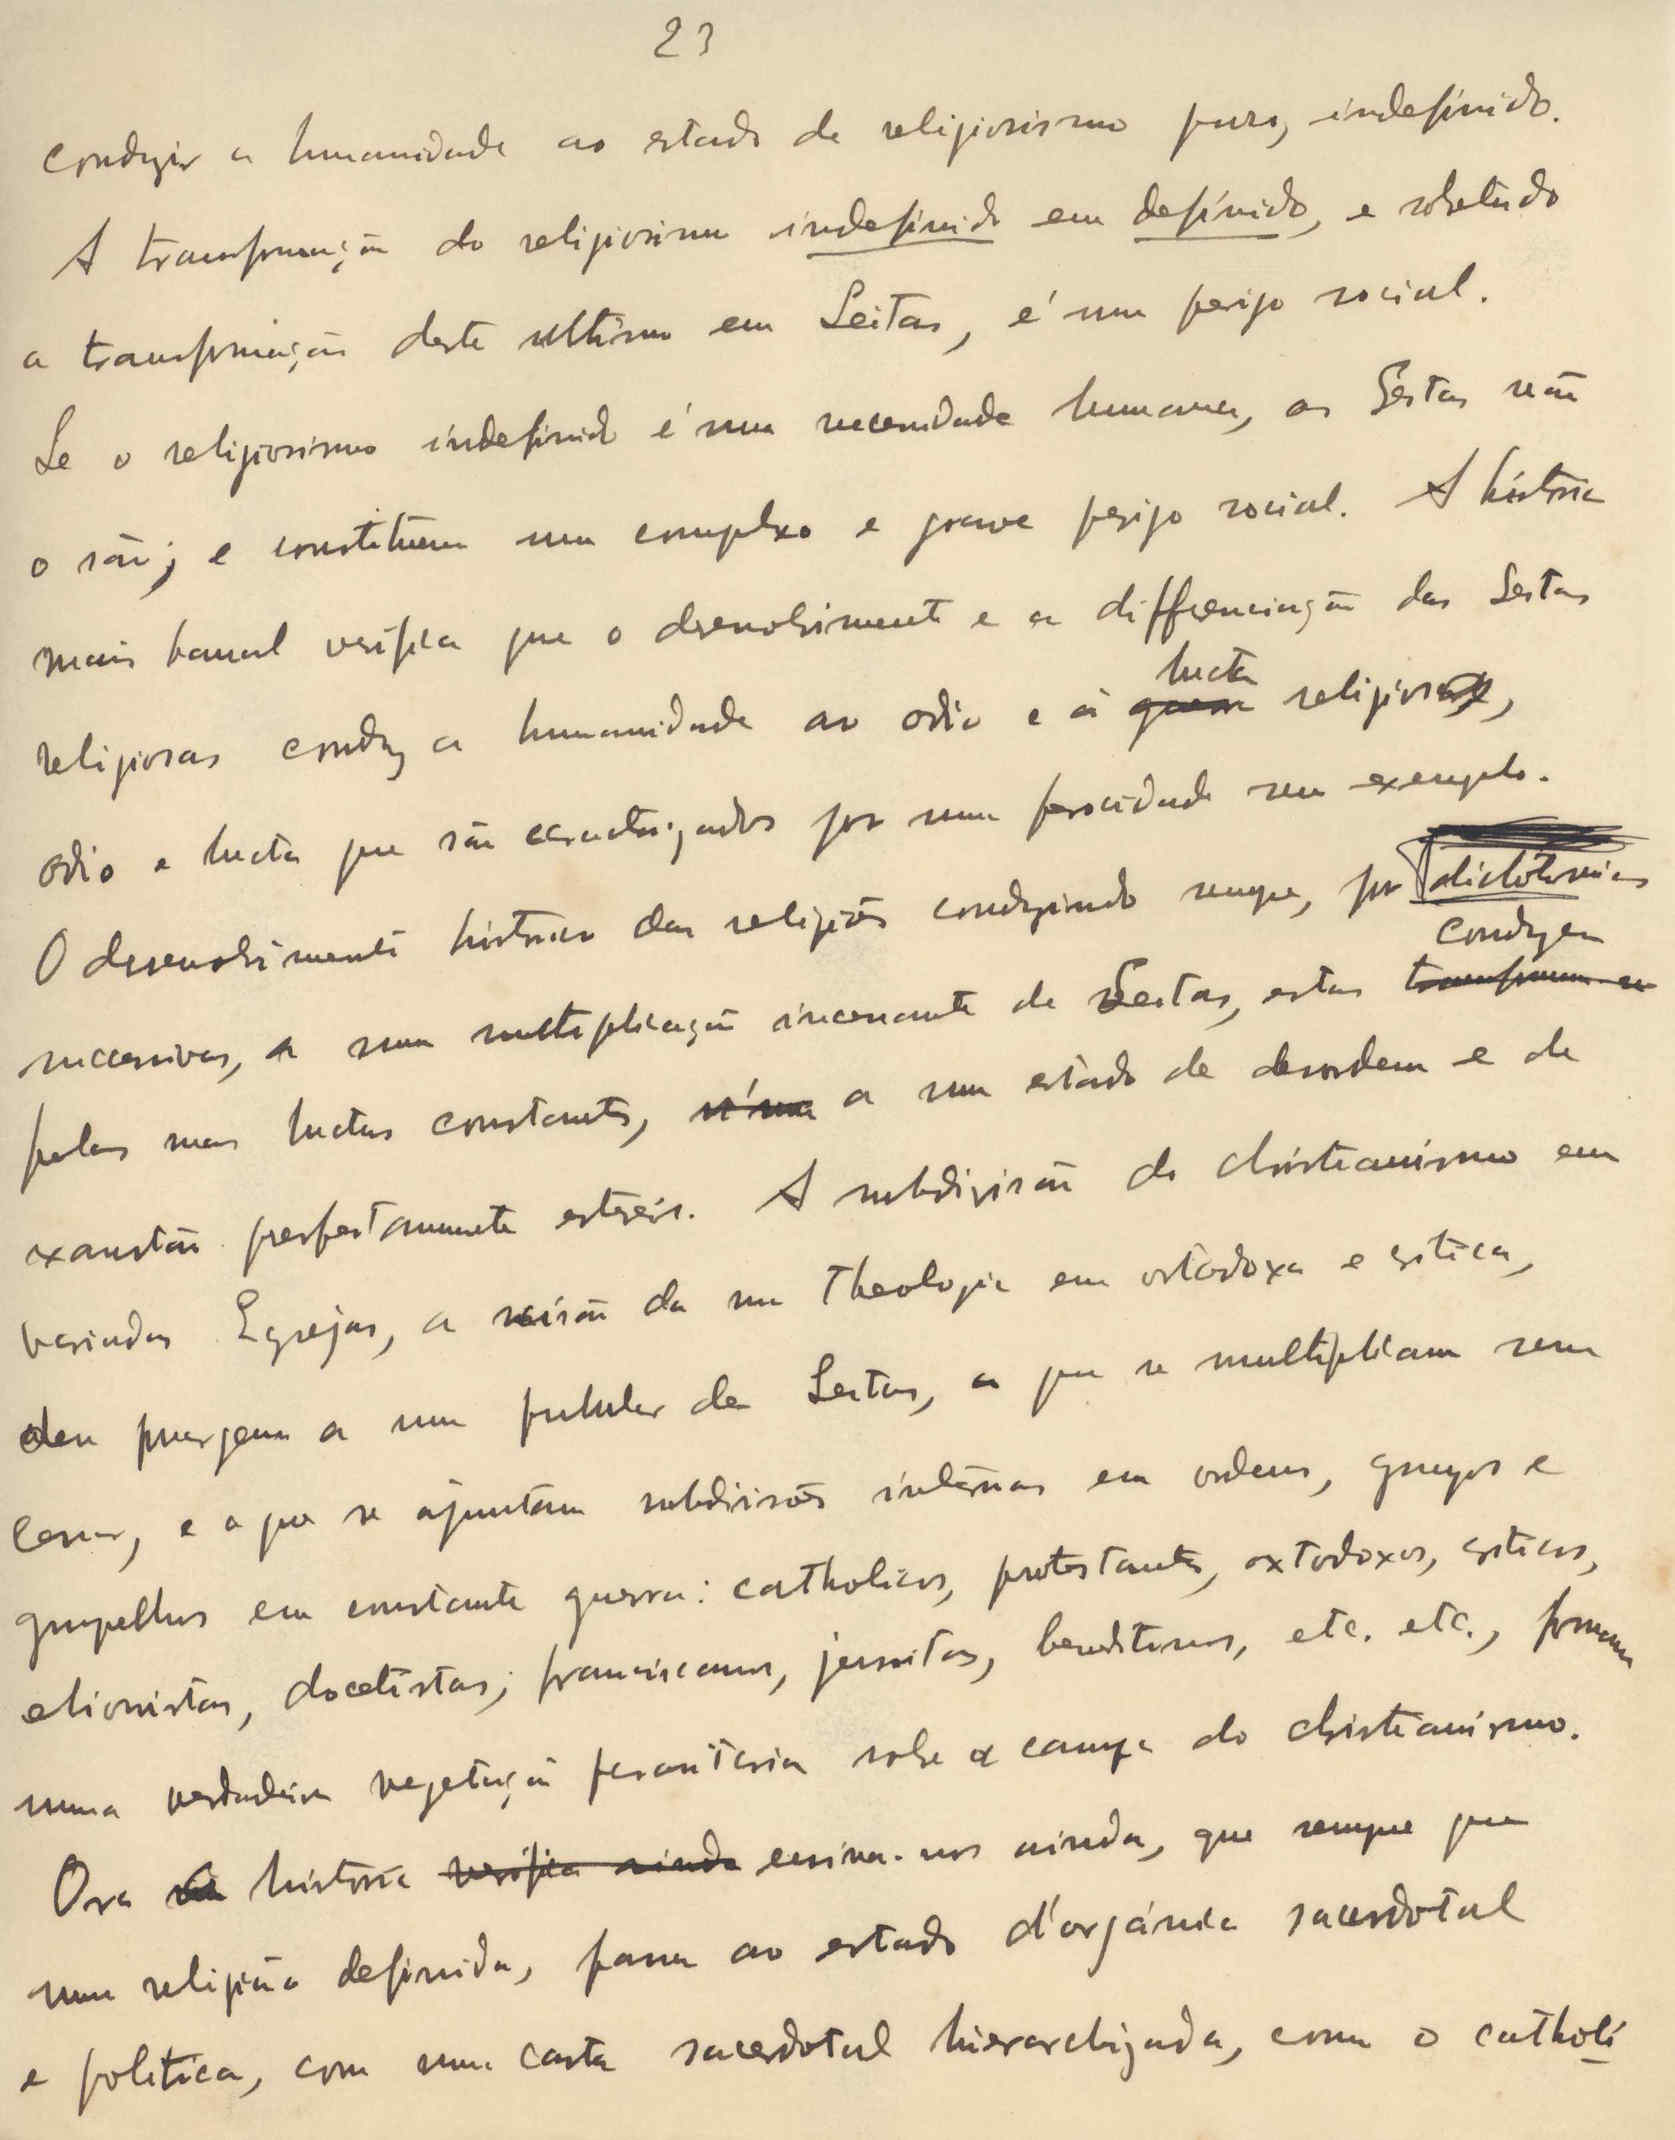 23
conduzir a humanidade ao estado de religiosismo puro, indefinido.
A transformação do religiosismo indefinido em definido, e sobretudo
a transformação deste ultimo em Seitas, é um perigo social.
Se o religiosismo indefinido é uma necessidade humana, as Seitas não
o são; e constituem um complexo e grave perigo social. A história
mais banal verifica que o desenvolvimento e a differenciação das Seitas
lucta
religiosas conduz a humanidade ao odio e á guerra religiosa,
odio e lucta que são caracterizados por uma ferocidade sem exemplo.
O desenvolvimento historico das religiões conduzindo sempre, por dichótomias
conduzem
successivas, a uma multiplicação incessante de Seitas, estas transformam-se
pelas suas luctas constantes, n'um a um estado de desordem e de
exaustão perfeitamente estereis. A subdivisão do christianismo em
variadas Egrejas, a cisão da sua Theologia em ortodoxa e critica,
deu margem a um pulular de Seitas, que se multiplicam sem
cessar, e a que se ajuntam subdivisões internas em ordens, grupos e
grupelhos em constante guerra: catholicos, protestantes, ortodoxos, criticos,
ebionistas, docetistas; franciscanos, jesuitas, beneditinos, etc. etc., formam
uma verdadeira vegetação parasitaria sobre a campa do christianismo.
Ora a historia verifica ainda ensina-nos ainda, que sempre que
uma religião definida, passa ao estado d'orgánica sacerdotal
e politica, com uma casta sacerdotal hierarchizada, como o catholi